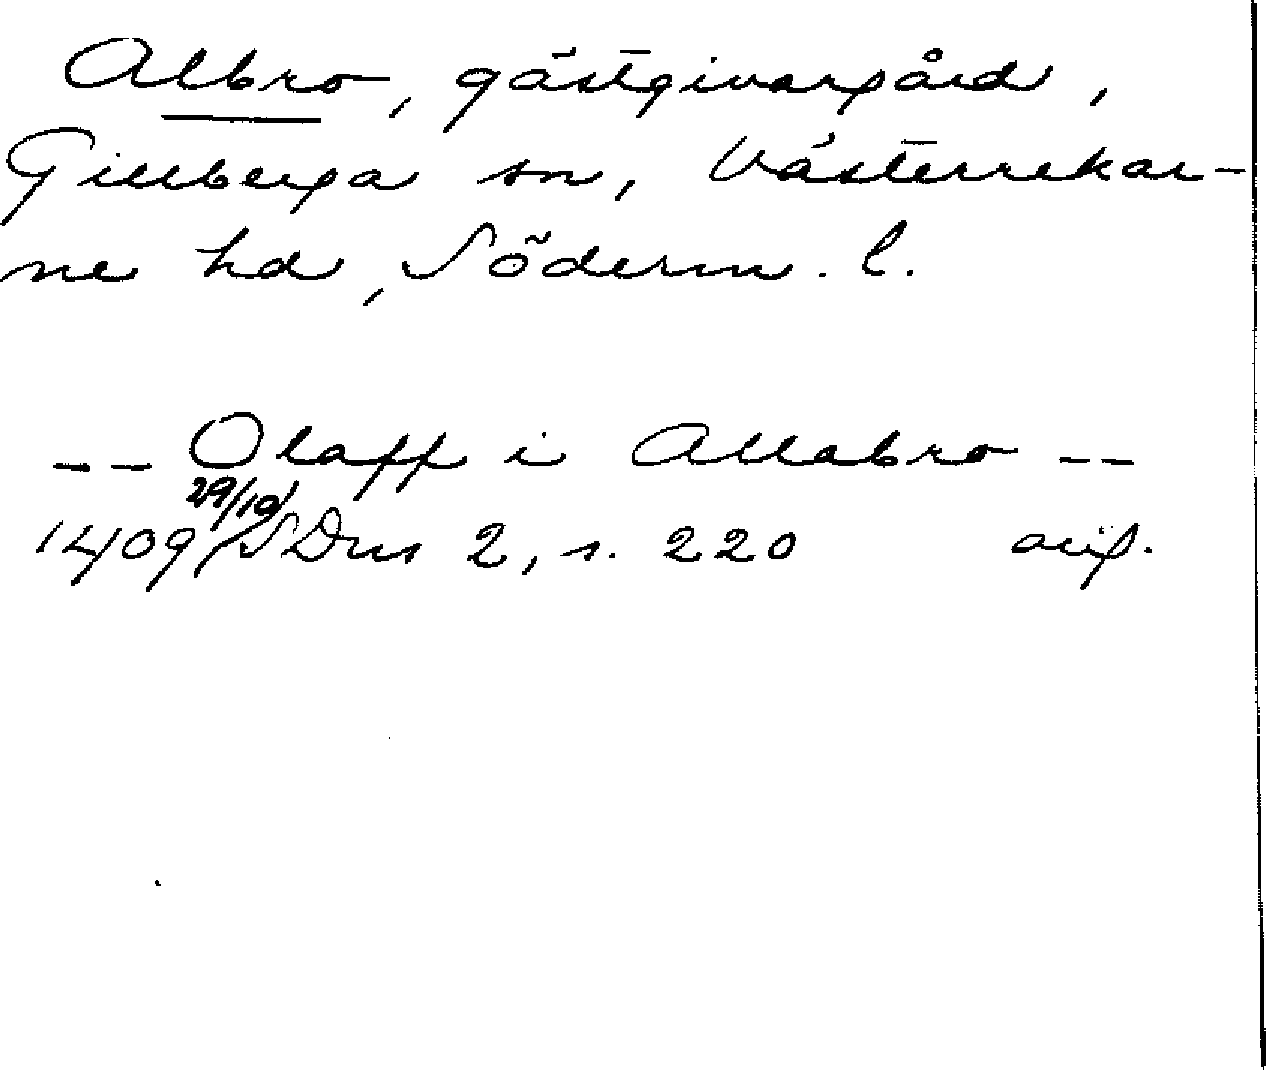 Albro, gästgivargård,
Gillberga sn, Västerrekar-
ne hd, Söderm. l.
-- Olaff i Allabro --
29/10
1409 SDns 2, s. 220 avs.